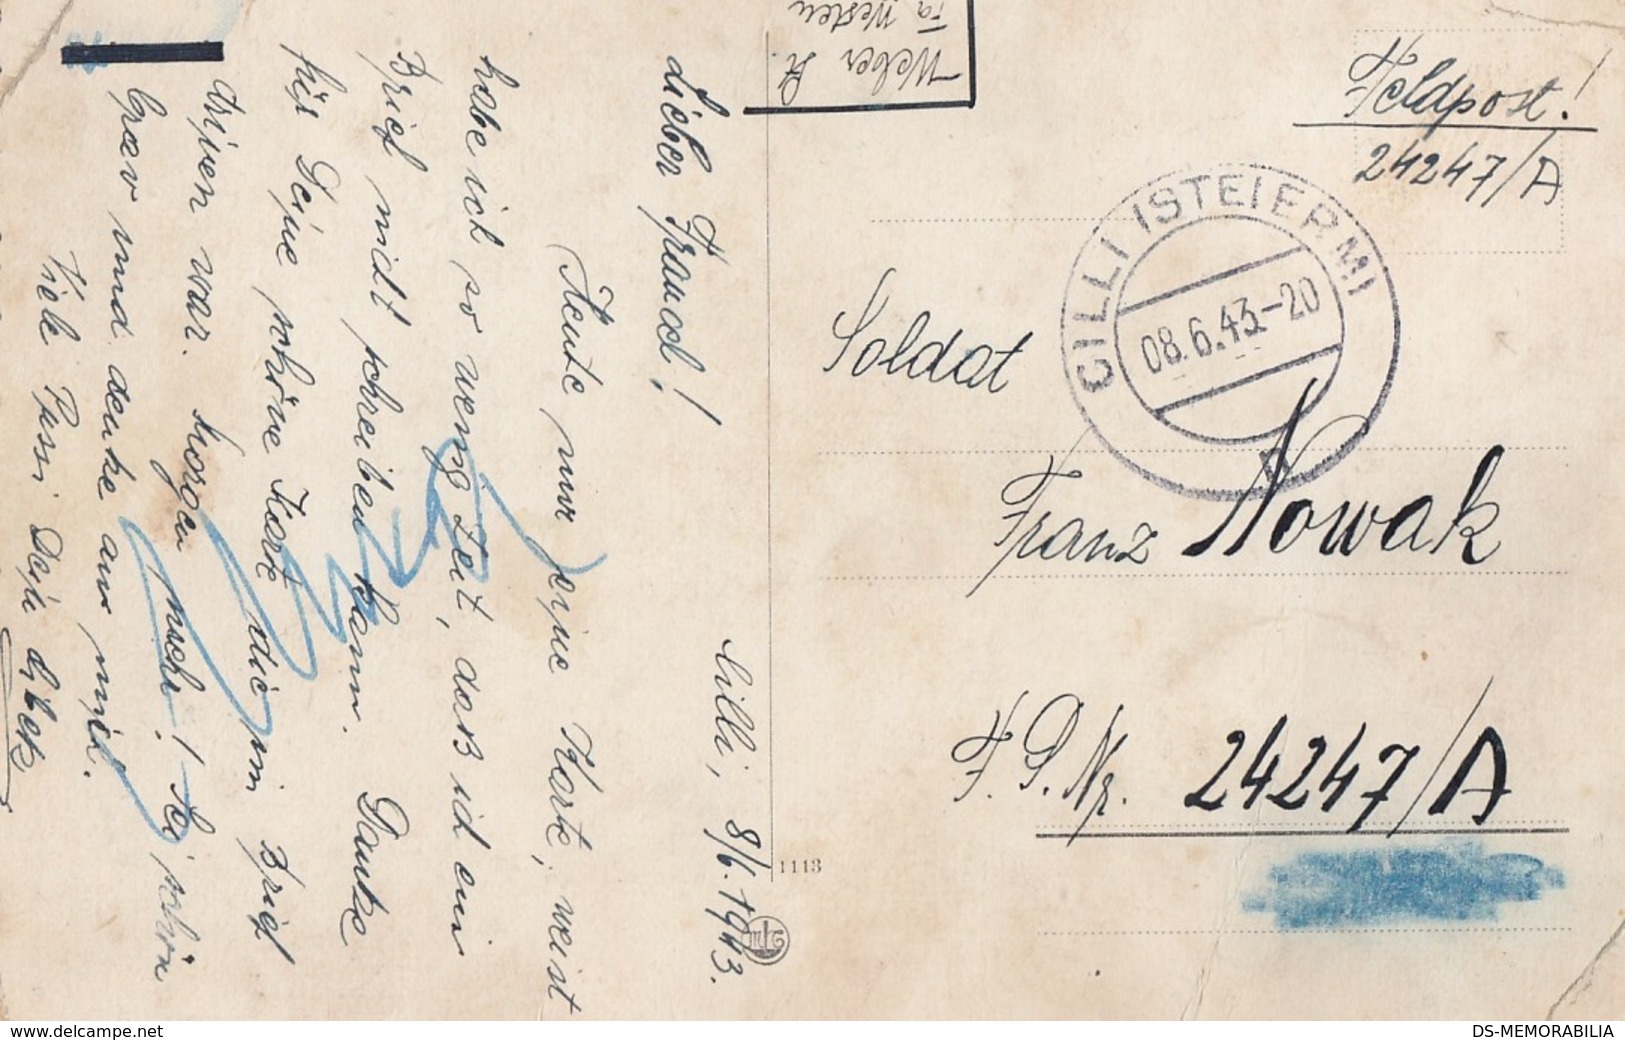 Cilli, 8/6.1943.
Lieber Freund!
Heute nur eine Karte, weist
habe ich so wenig Zeit, daß ich ein
Brief nicht schreiben kann. Danke
für Deine schöne Karte die im Brief
drinen war.
brav und denke an mich.
Viele Bussi Dein
Weber
Feldpost!
24247/A
CILLI (STEIERM)
08.6.43.-20
b
Soldat
Franz Nowak
F.P.Nr. 24247/A
1113
www.delcampe.net
DS-MEMORABILIA